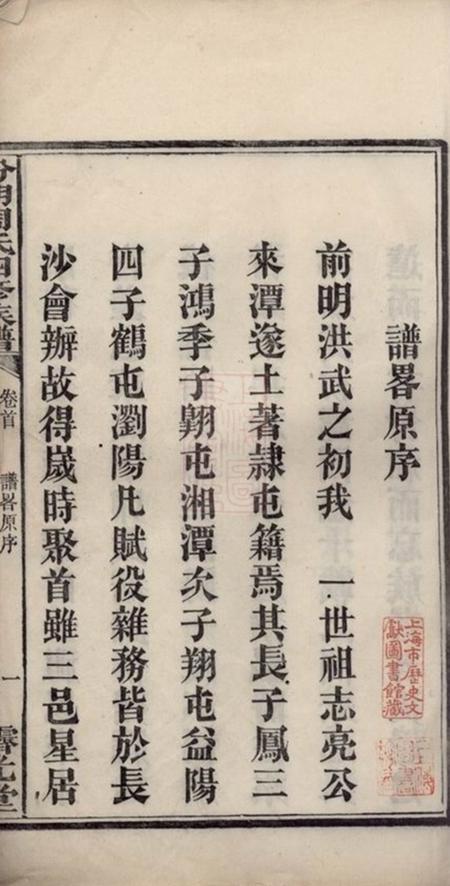 譜畧原序
前明洪武之初我 一世祖志亮公
來潭遂土著隷屯籍焉其長子鳳三
子鴻季子翺屯湘潭次子翔屯益陽
四子鶴屯瀏陽凡賦役雜務皆於長
沙會辦故得歲時聚首雖三邑星居
周氏四修族譜
卷首
譜畧原序
一
上海市歷史文
獻圖書館藏